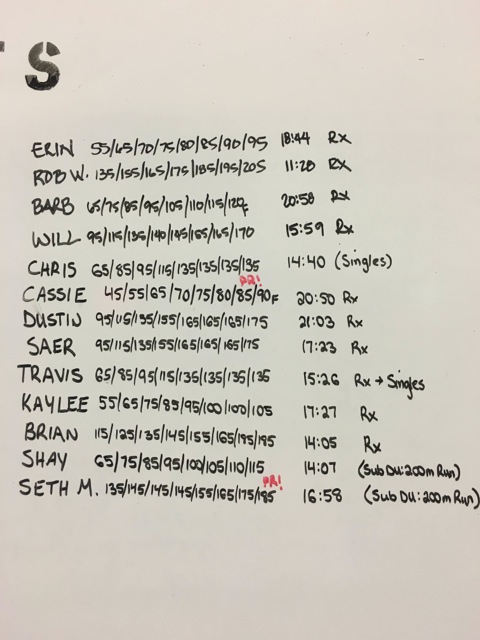 S
ERIN 55/65/70/75/80/85/90/95 18:44 Rx
ROB W. 135/155/165/175/185/195/205 11:28 Rx
BARB 65/75/85/95/105/110/115/120F 20:58 Rx
WILL 95/115/135/140/145/155/165/170 15:59 Rx
CHRIS 65/85/95/115/135/135/135/135 14:40 (Singles)
PR!
CASSIE 45/55/65/70/75/80/85/90F 20:50 Rx
DUSTIN 95/115/135/155/165/165/165/175 21:03 Rx
SAER 95/115/135/155/165/165/165/175 17:23 Rx
TRAVIS 65/85/95/115/135/135/135/135 15:26 Rx → Singles
KAYLEE 55/65/75/85/95/100/100/105 17:27 Rx
BRIAN 115/125/135/145/155/165/195/195 14:05 Rx
SHAY 65/75/85/95/100/105/110/115 14:07 (Sub DU: 200m Run)
PR!
SETH M. 135/145/145/145/155/165/175/185 16:58 (Sub DU: 200m Run)